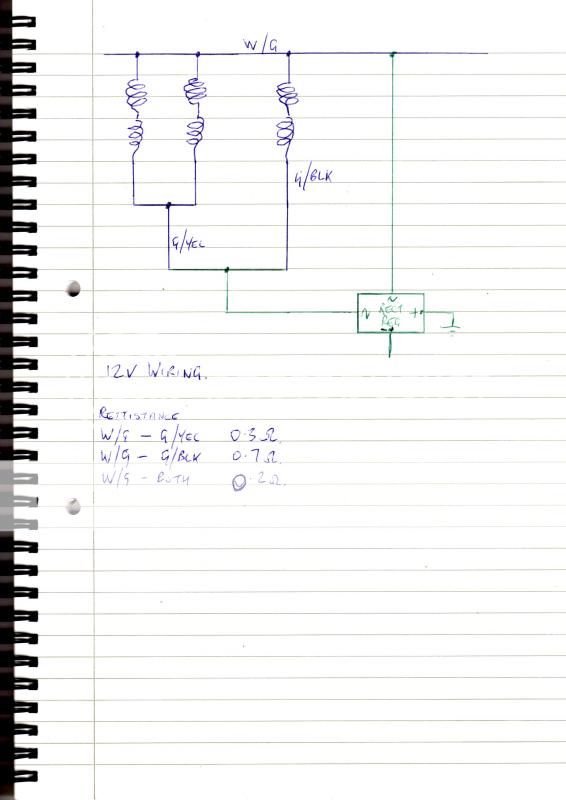 W/G
G/BLK
G/YEL
~
~ RECT +
REG
-
12V WIRING.
RETTISTANCE
W/G - G/YEL 0.3 Ω.
W/G - G/BLK 0.7 Ω.
W/G - BOTH 0.2 Ω.